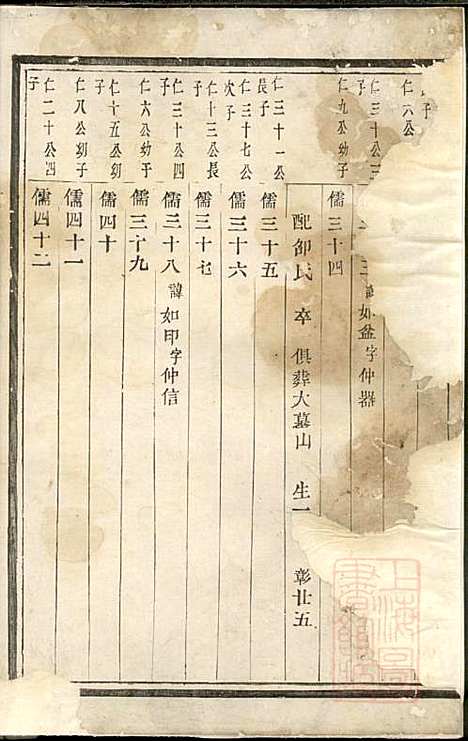 子
仁六公
仁三十公
三 諱如盆字仲器
仁九公幼子
儒三十四
配邵氏 卒 俱葬大墓山 生一 彰廿五
仁三十一公長子
儒三十五
仁三十七公次子
儒三十六
仁十三公長子
儒三十七
仁三十公四子
儒三十八 諱如印字仲信
仁六公幼子
儒三十九
仁十五公幼子
儒四十
仁八公幼子
儒四十一
仁二十公四子
儒四十二
上海圖書館藏